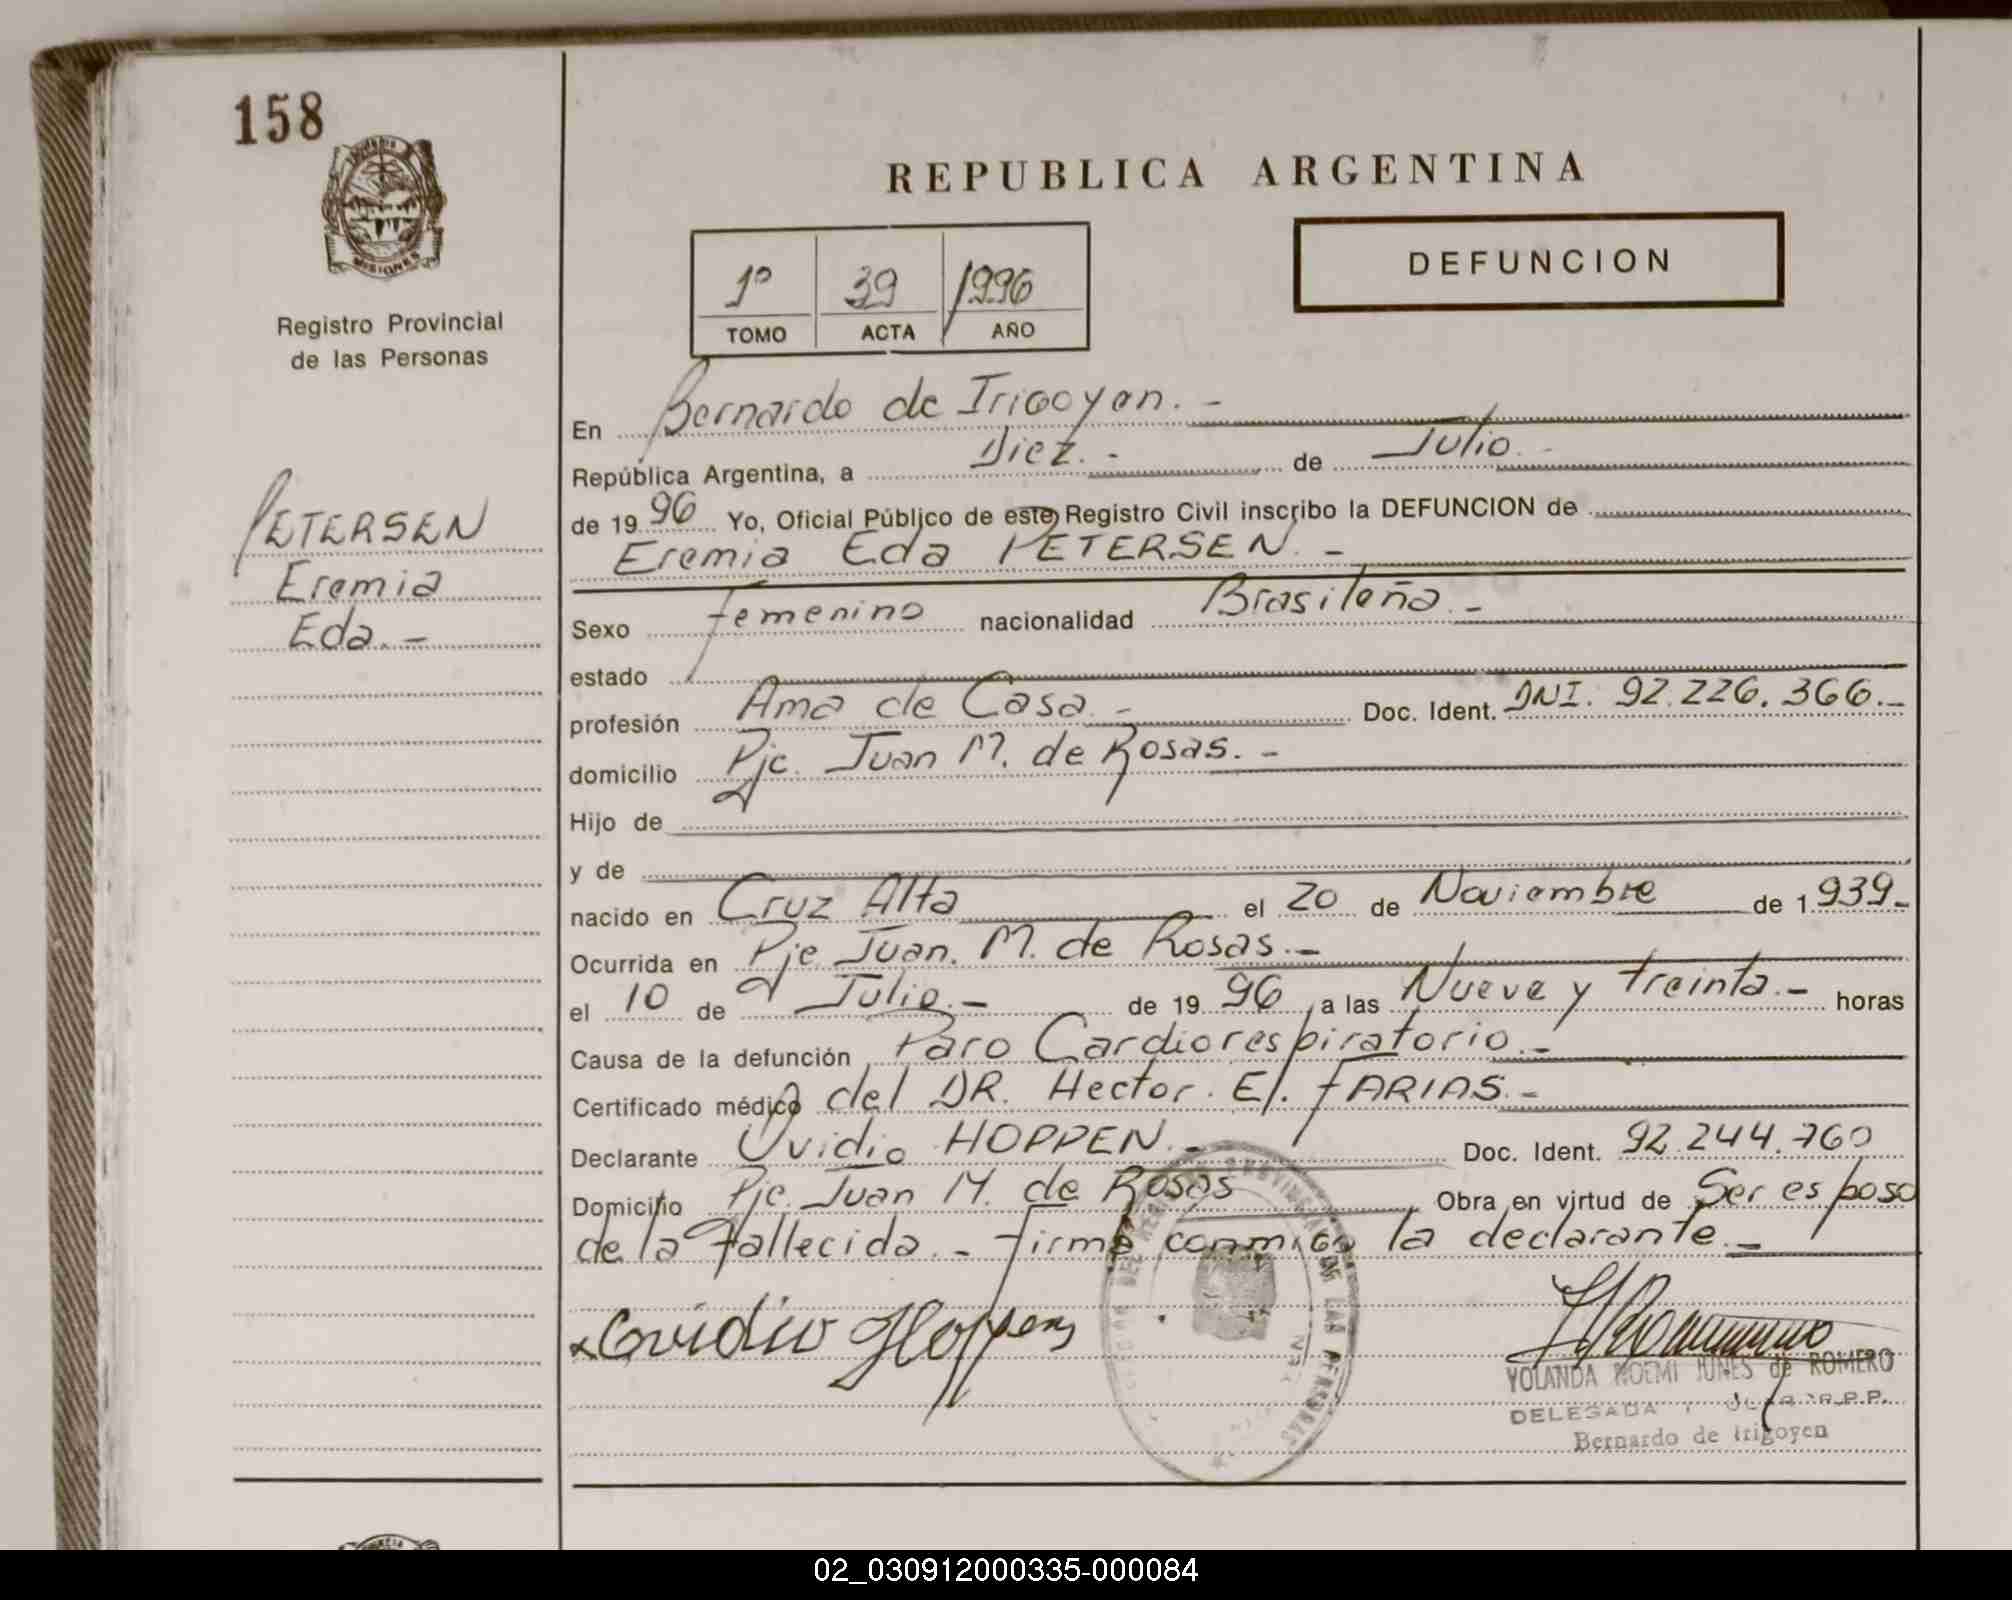 158
MISIONES
Registro Provincial
de las Personas
PETERSEN
Eremia
Eda.-
REPUBLICA ARGENTINA
1º 39 1996
TOMO ACTA AÑO
DEFUNCION
En Bernardo de Irigoyen.-
República Argentina, a Diez.- de Julio.-
de 1996 Yo, Oficial Público de este Registro Civil inscribo la DEFUNCION de
Eremia Eda PETERSEN.-
Sexo femenino nacionalidad Brasileña.-
estado
profesión Ama de Casa.- Doc. Ident. DNI. 92.226.366.-
domicilio Pje. Juan M. de Rosas.-
Hijo de
y de
nacido en Cruz Alta el 20 de Noviembre de 1939-
Ocurrida en Pje Juan. M. de Rosas.-
el 10 de Julio.- de 1996 a las Nueve y treinta.- horas
Causa de la defunción Paro Cardiorespiratorio.-
Certificado médico del DR. Hector. E. FARIAS.-
Declarante Ovidio HOPPEN.- Doc. Ident. 92.244.760
Domicilio Pje. Juan M. de Rosas Obra en virtud de Ser esposo
de la fallecida.- Firma conmigo la declarante.-
Ovidio Hoppen
YOLANDA NOEMI JUNES de ROMERO
DELEGADA R.P.P.
Bernardo de Irigoyen
02_030912000335-000084